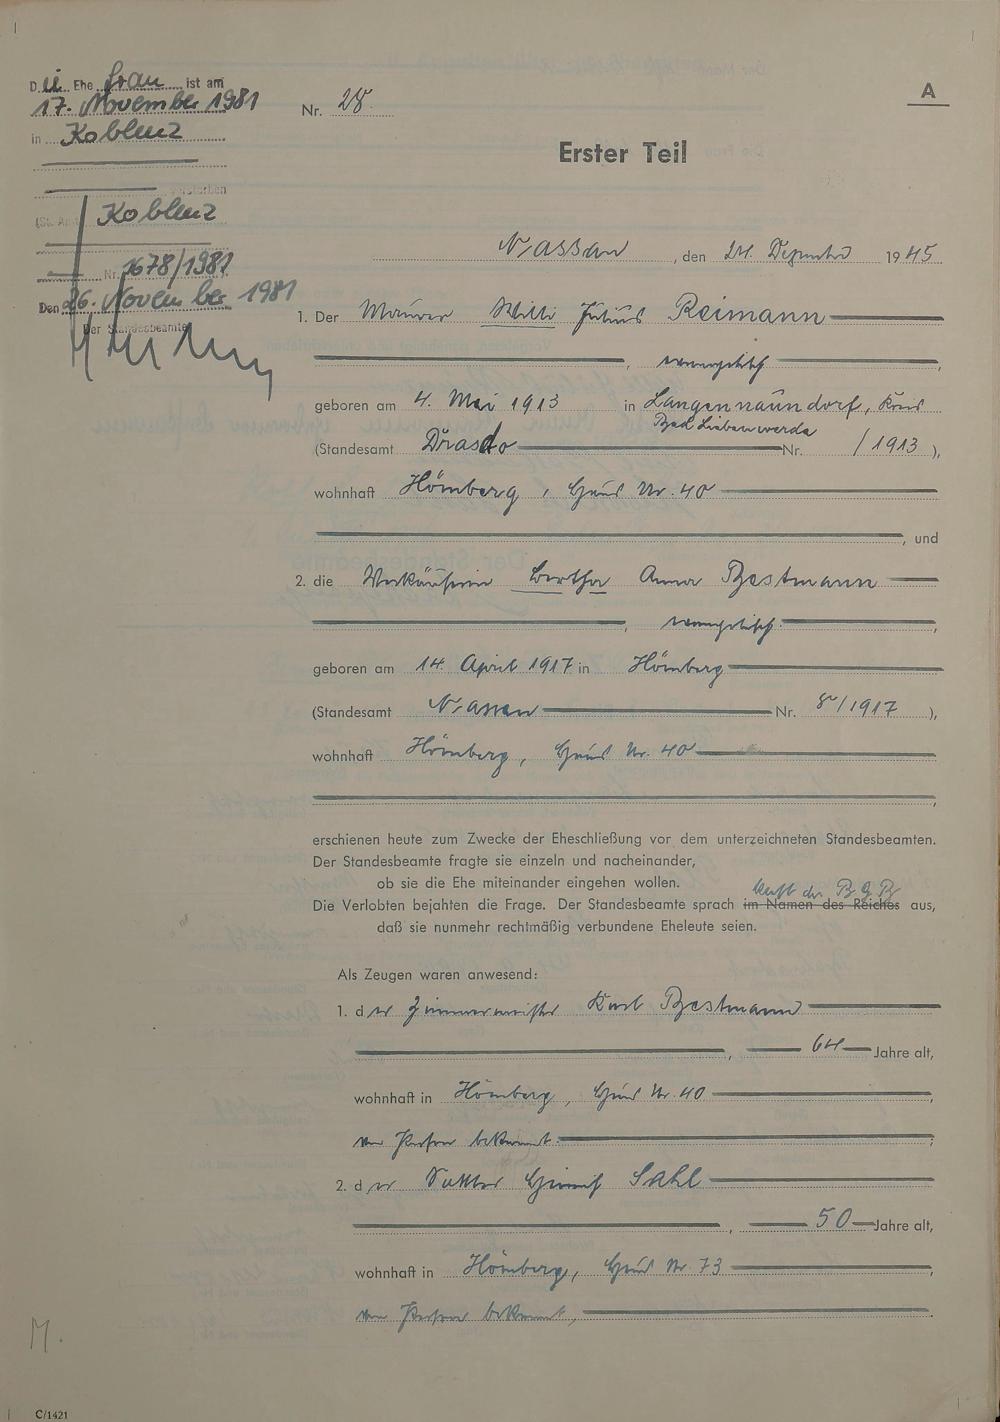 Die Ehefrau ist am
17. November 1981
in Koblenz
verstorben
(St. Amt Koblenz
Nr. 1678/1981
Den 26. November 1981
Der Standesbeamte
A
Nr. 28.
Erster Teil
Nassau, den 24. Dezember 1945
1. Der Maurer Willi Julius Reimann
, evangelisch,
geboren am 4. Mai 1913 in Langennaundorf, Kreis
Bad Liebenwerda
(Standesamt Drasdo Nr. /1913),
wohnhaft Hömberg, Haus Nr. 40
, und
2. die Verkäuferin Bertha Anna Bestmann
, evangelisch,
geboren am 14. April 1917 in Hömberg
(Standesamt Nassau Nr. 8/1917),
wohnhaft Hömberg, Haus Nr. 40
,
erschienen heute zum Zwecke der Eheschließung vor dem unterzeichneten Standesbeamten.
Der Standesbeamte fragte sie einzeln und nacheinander,
ob sie die Ehe miteinander eingehen wollen.
kraft des B G B
Die Verlobten bejahten die Frage. Der Standesbeamte sprach im Namen des Reiches aus,
daß sie nunmehr rechtmäßig verbundene Eheleute seien.
Als Zeugen waren anwesend:
1. der Zimmermeister Karl Bestmann
, 64 Jahre alt,
wohnhaft in Hömberg, Haus Nr. 40,
von Person bekannt;
2. der Heinrich Sahl
, 50 Jahre alt,
wohnhaft in Hömberg, Haus Nr. 73,
von Person bekannt,
M.
C/1421